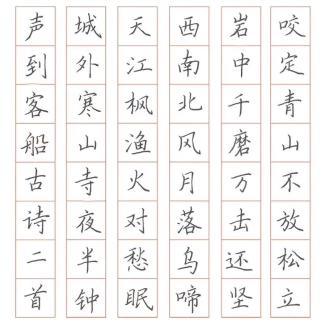 咬定青山不放松立
岩中千磨万击还坚
西南北风月落乌啼
天江枫渔火对愁眠
城外寒山寺夜半钟
声到客船古诗二首